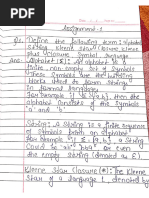 Assignment-1
Q1. Define the following term: Alphabet
string, Kleene star, Kleene
plus closure, Symbol, Σ
Ans: Alphabet (Σ): An alphabet is a
finite non-empty set of symbols
These symbols are the building
blocks used to form strings
in a formal language.
for Example: if Σ = {a,b}, then the
alphabet consists of the symbols
'a' and 'b'
String: A String is a finite sequence
of symbols from an alphabet
for Example: Σ = {a,b}, a string
could be "ab", "bba" or even
the empty string
Kleene Star Closure (*): The Kleene
Star of a language L, denoted by